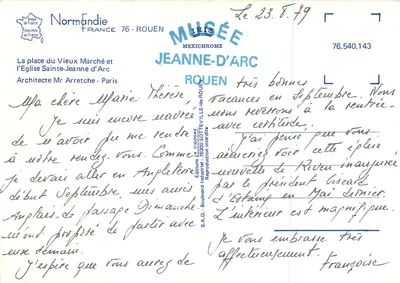 Normandie
FRANCE 76 - ROUEN
La place du Vieux Marché et
l'Eglise Sainte-Jeanne d'Arc
Architecte Mr Arretche - Paris
IRIS
MEXICHROME
MUSÉE
JEANNE-D'ARC
ROUEN
76.540.143
Le 23. 8. 79
Ma chère Marie Thérèse,
Je suis encore navrée
de n'avoir pu me rendre
à notre rendez-vous. Comme
je devais aller en Angleterre
début Septembre, mes amis
Anglais de passage Dimanche
m'ont proposé de partir avec
eux demain.
J'espère que vous aurez de
très bonnes
vacances en Septembre. Nous
nous reverrons à la rentrée
avec certitude.
J'ai pensé que vous
aimeriez voir cette église
nouvelle de Rouen inaugurée
par le président Giscard
d'Estaing en Mai dernier.
L'intérieur est magnifique.
Je vous embrasse très
affectueusement.
Françoise